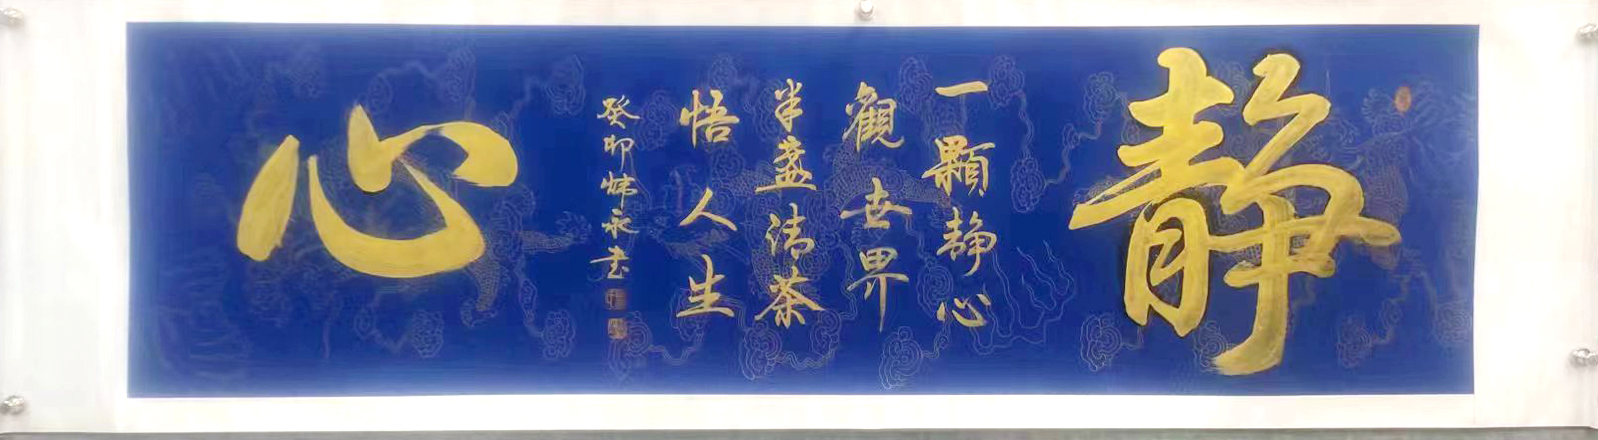 静
一顆静心
觀世界
半盞清茶
悟人生
癸卯
永书
心